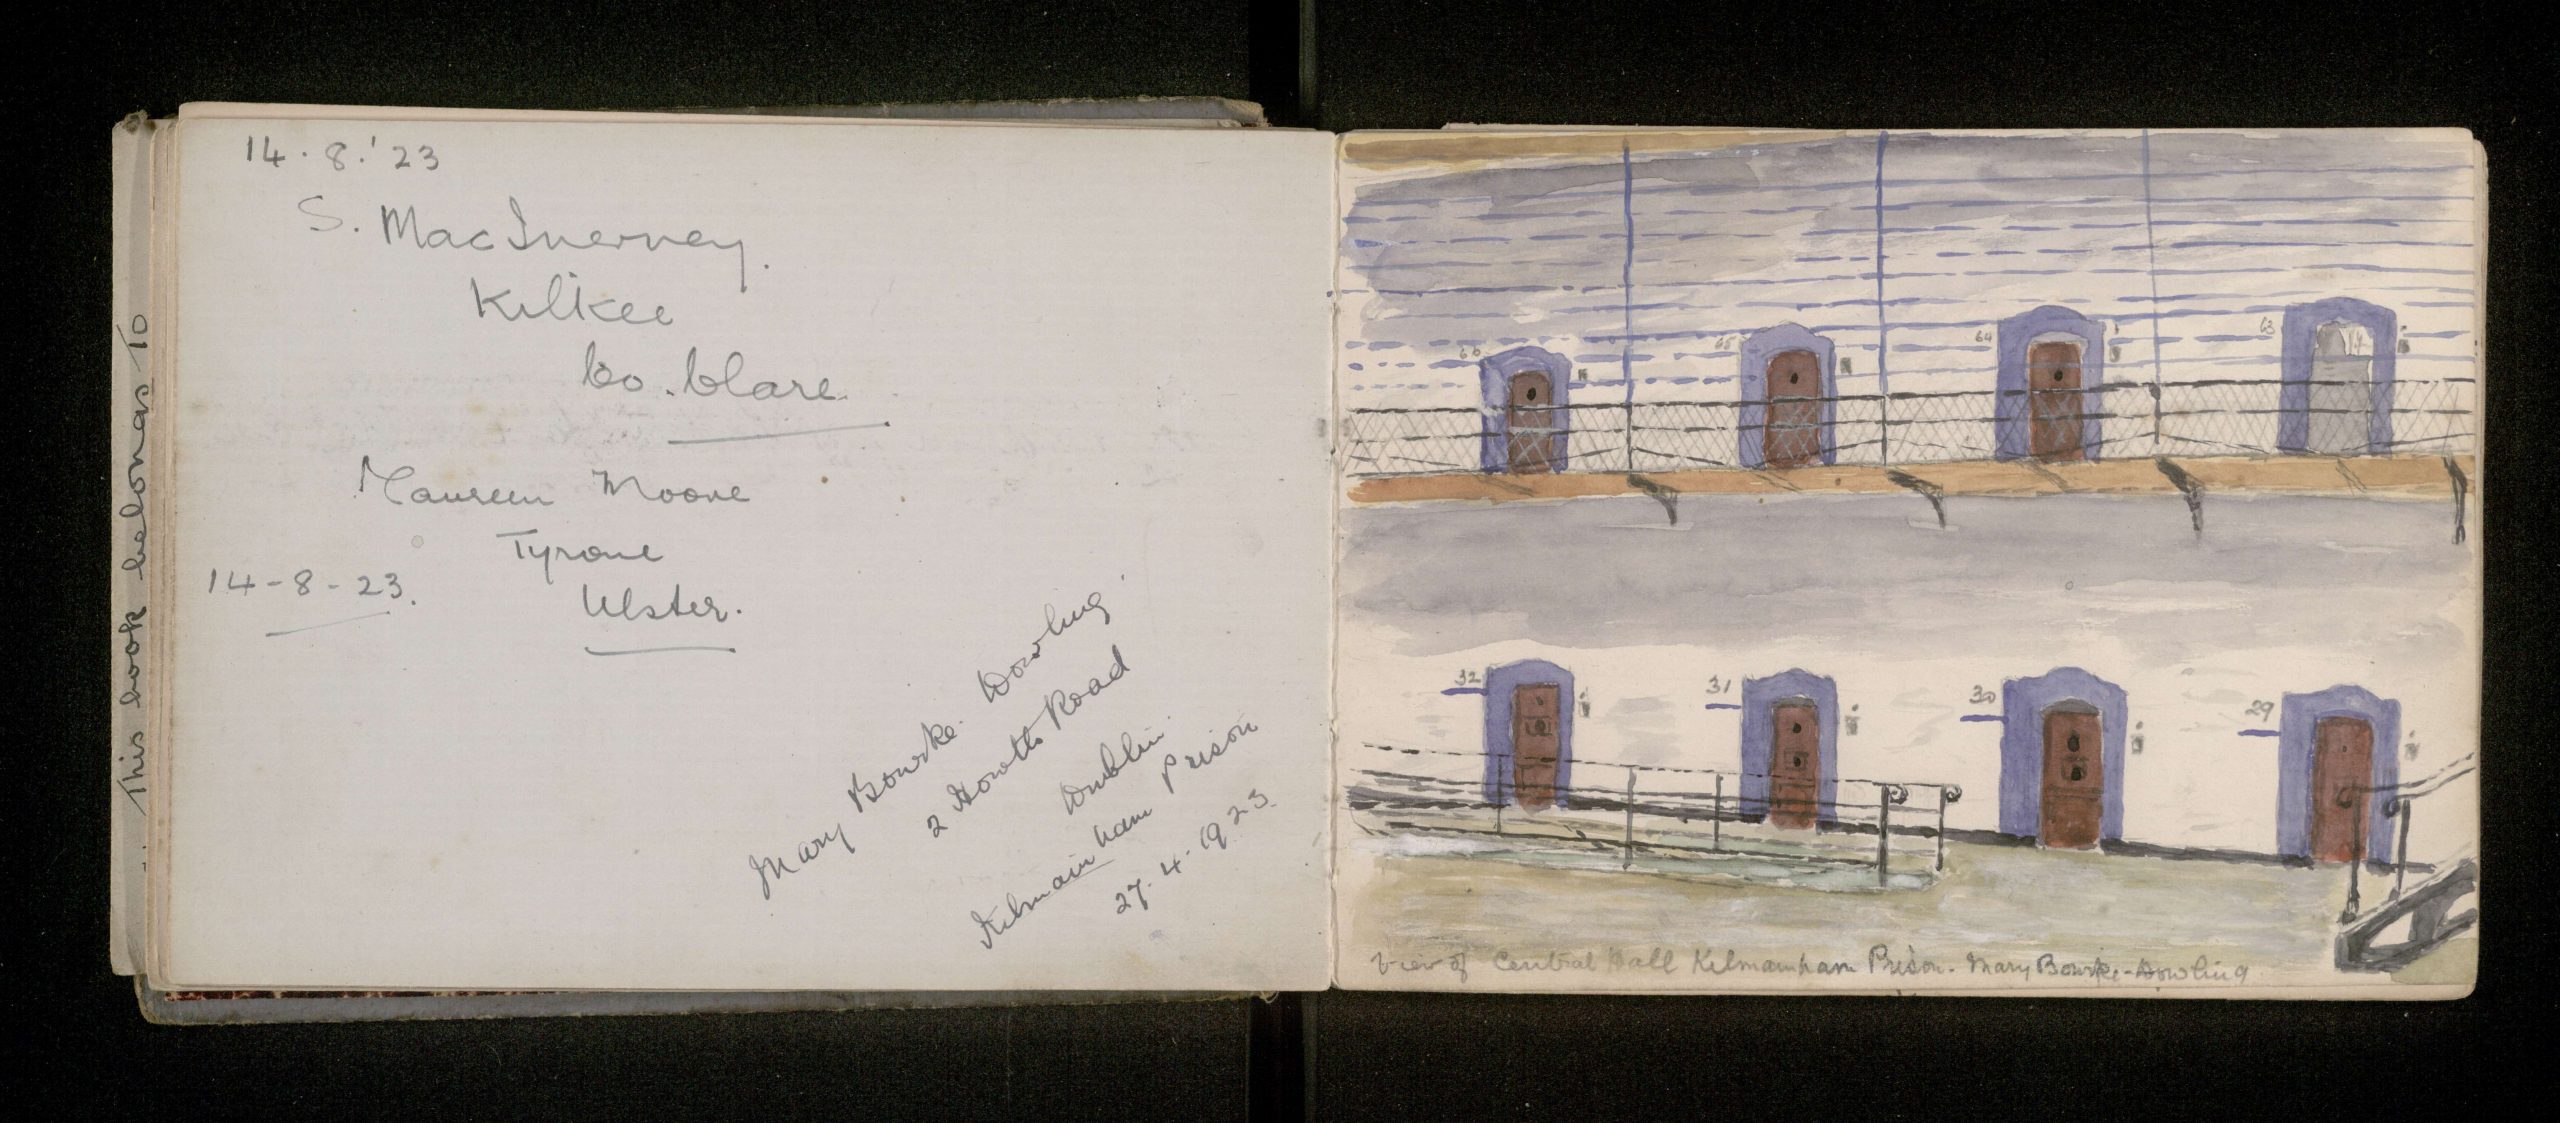 This book belongs To
14.8.'23
S. MacInerney.
Kilkee
Co. Clare.
Maureen Moore
Tyrone
14-8-23.
Ulster.
Mary Bourke. Dowling
2 Howth Road
Dublin.
Kilmainham Prison
27.4.1923.
66
65
64
63
32
31
30
29
View of Central Hall Kilmainham Prison. Mary Bourke-Dowling